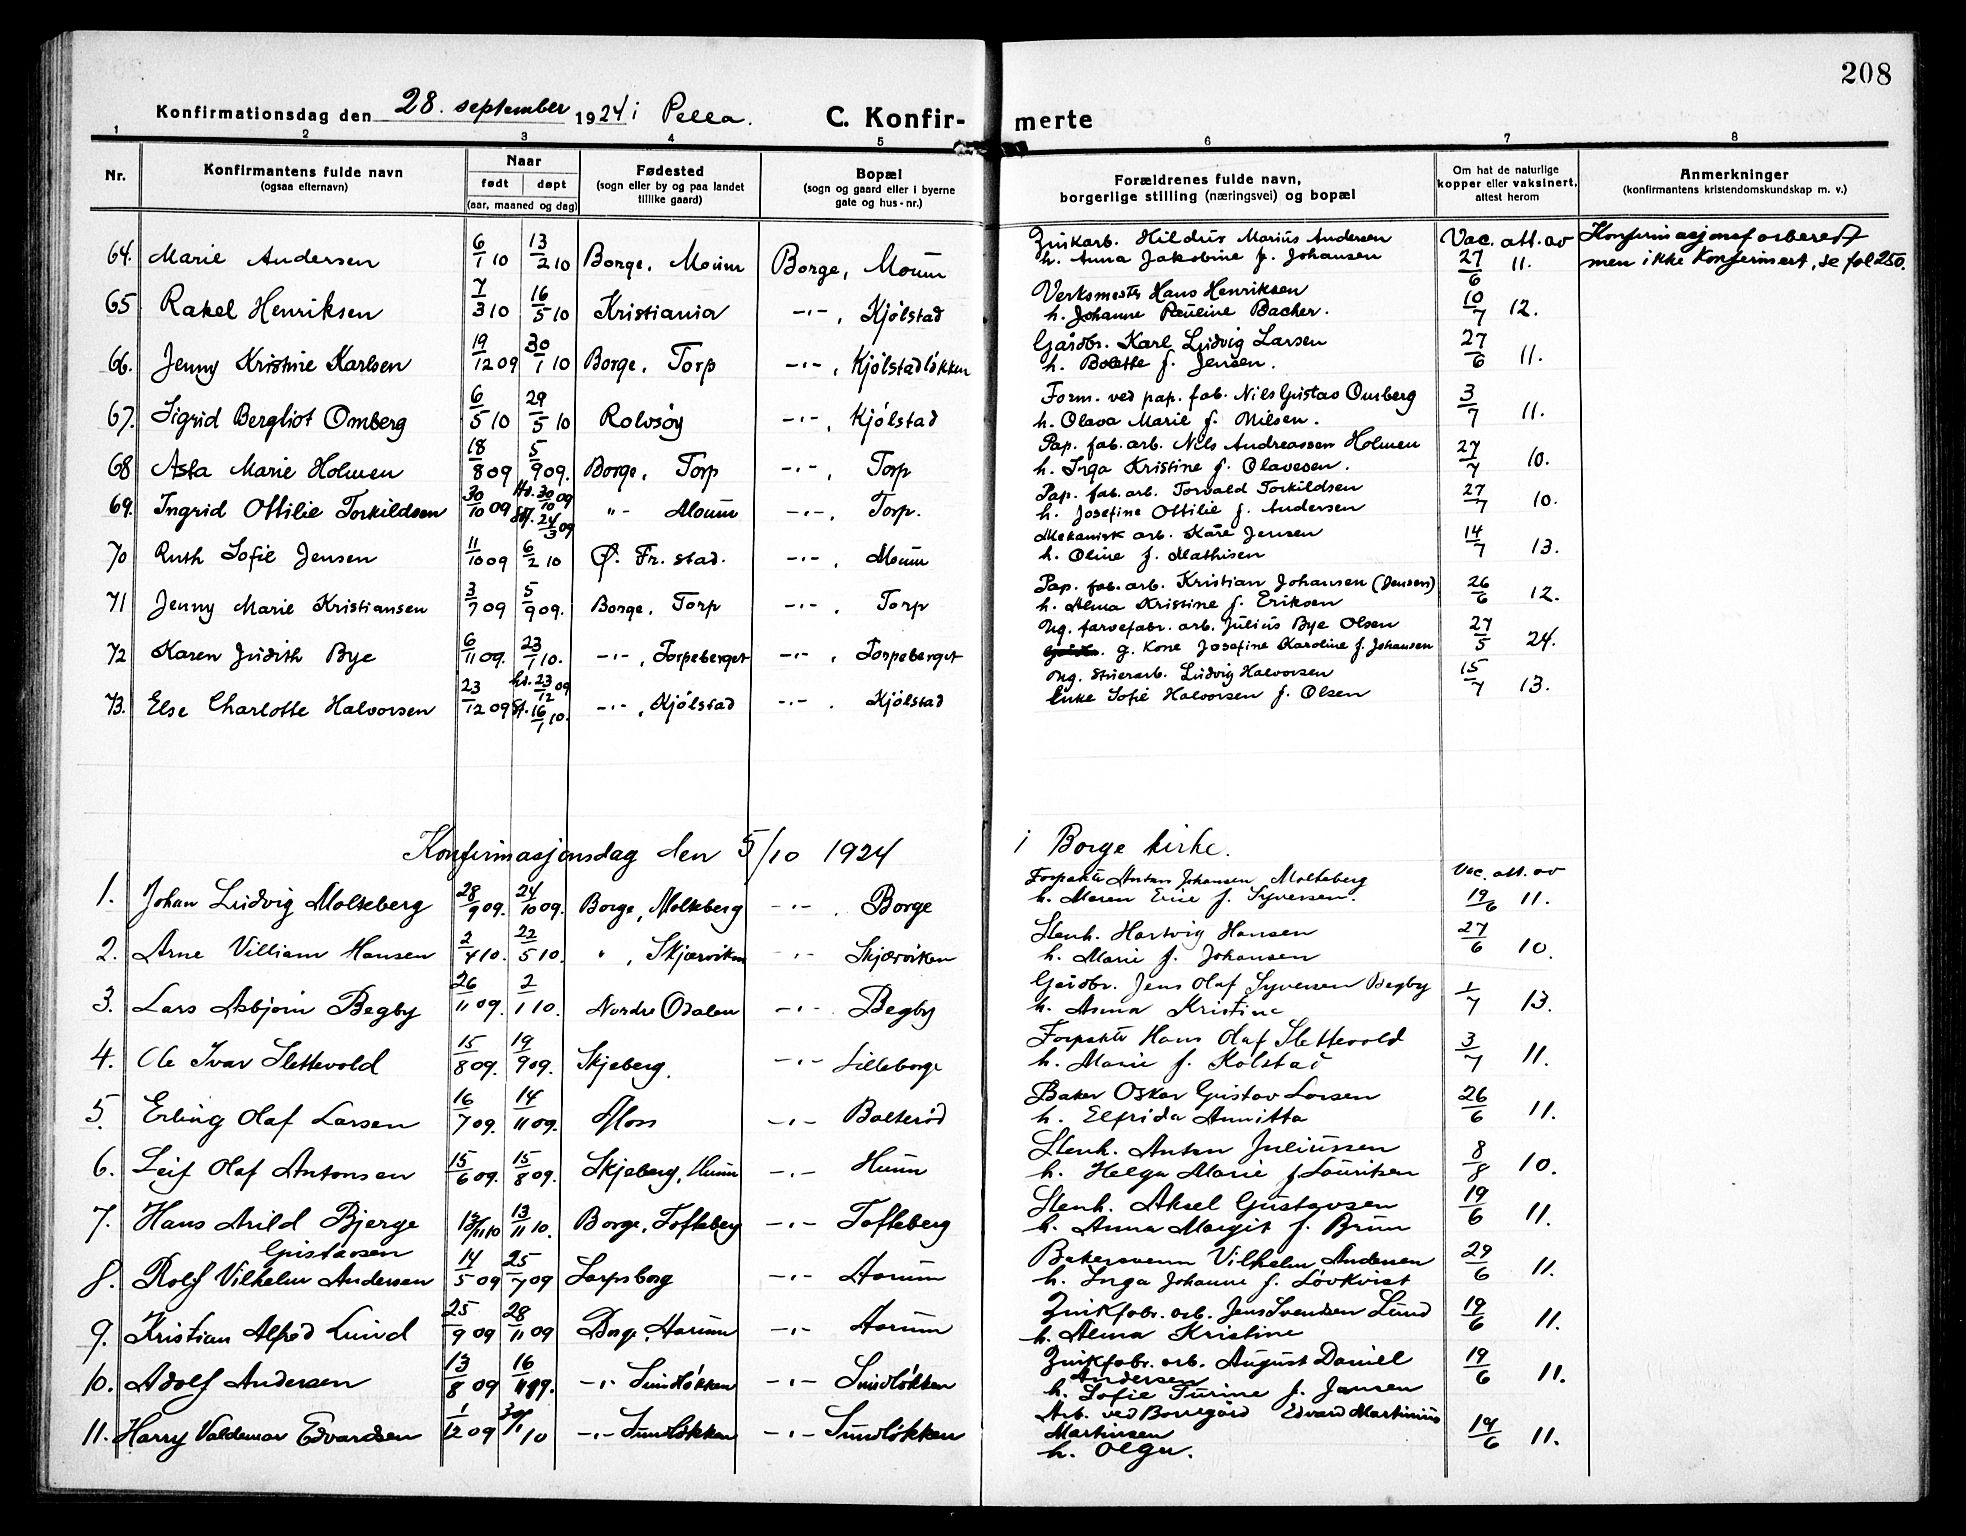 208
Konfirmationsdag den 28. september 1924 i Pella.
C. Konfir- merte
1 2 3 4 5 6 7 8
Nr. Konfirmantens fulde navn (ogsaa efternavn) Naar født døpt (aar, maaned og dag) Fødested (sogn eller by og paa landet tillike gaard) Bopæl (sogn og gaard eller i byerne gate og hus-nr.) Forældrenes fulde navn, borgerlige stilling (næringsvei) og bopæl Om hat de naturlige kopper eller vaksinert, attest herom Anmerkninger (konfirmantens kristendomskundskap m. v.)
64. Marie Andersen 6/1 10 13/2 10 Borge, Moum Borge, Moum Zinkarb. Hildus Marius Andersen Vac. att. av Konfirmasjonsforberedt
h. Anna Jakobine f. Johansen 27/6 11. men ikke Konfirmert, se fol 250.
65 Rakel Henriksen 7/3 10 16/5 10 Kristiania -"-, Kjølstad Verksmestr Hans Henriksen
h. Johanne Pauline Bacher. 10/7 12.
66. Jenny Kristine Karlsen 19/12 09 30/1 10 Borge, Torp -"-, Kjølstadløkken Gårdbr. Karl Ludvig Larsen
h. Bolette f. Jensen. 27/6 11.
67. Sigrid Bergliot Omberg 6/5 10 29/5 10 Rolvsøy -"-, Kjølstad Form. ved pap. fab. Nils Gustav Omberg
h. Olava Marie f. Nilsen. 3/7 11.
68 Asta Marie Holmen 18/8 09 5/9 09. Borge, Torp -"-, Torp Pap. fab. arb. Nils Andreassen Holmen
h. Inga Kristine f. Olavesen. 27/7 10.
69. Ingrid Ottilie Torkildsen 30/10 09 Hd. 30/10 09 Stf. 24/3 09 "- Moum -"-, Torp. Pap. fab. arb. Torvald Torkildsen
h. Josefine Ottilie f. Andersen 27/7 10.
70 Ruth Sofie Jensen 11/10 09 6/2 10 Ø. Fr. stad. -"-, Moum Mekanisk arb. Kåre Jensen
h. Oline f. Mathisen 14/7 13.
71 Jenny Marie Kristiansen 3/7 09 5/9 09. Borge, Torp -"-, Torp Pap. fab. arb. Kristian Johansen (Jensen)
h. Alma Kristine f. Eriksen 26/6 12.
72 Karen Judith Bye 6/11 09. 23/1 10. -"-, Torpeberget -"-, Torpeberget Ug. farvefabr. arb. Julius Bye Olsen
g. Kone Josefine Karoline f. Johansen 27/5 24.
73. Else Charlotte Halvorsen 23/12 09 hd. 23/12 09 St. 16/1 10. -"-, Kjølstad -"- Kjølstad Ug. stuerarb. Ludvig Halvorsen
Enke Sofie Halvorsen f. Olsen 15/7 13.
Konfirmasjonsdag den 5/10 1924 i Borge kirke.
1. Johan Ludvig Molteberg 28/9 09. 24/10 09. Borge, Molteberg -"-. Borge Forpaktr Anton Johansen Molteberg Vac. att. av
h. Maren Evine f. Syversen. 19/6 11.
2. Arne Villiam Hansen 2/4 10. 22/5 10. ", Skjærviken -"- Skjærviken Stenh. Hartvig Hansen
h. Marie f. Johansen 27/6 10.
3. Lars Asbjørn Begby 26/11 09. 2/1 10. Nordre Odalen -"- Begby Gårdbr. Jens Olaf Syversen Begby
h. Asma Kristine 1/7 13.
4. Ole Ivar Slettevold 15/8 09. 19/9 09. Skjeberg. -"- Lilleborge Forpaktr Hans Olaf Slettevold
h. Marie f. Kolstad 3/7 11.
5. Erling Olaf Larsen 16/7 09. 14/11 09. Moss -"- Balterød Baker Oskar Gustav Larsen
h. Elfrida Annitta 26/6 11.
6. Leif Olaf Antonsen 15/6 09. 15/8 09. Skjeberg, Hunn -"- Hunn Stenh. Anton Juliussen
h. Helga Marie f Lauritsen 8/8 10.
7. Hans Arild Bjerge 13/11 10 13/11 10. Borge, Tofteberg -"- Tofteberg Stenh. Aksel Gustavsen
Gustavsen h. Anna Margit f. Brun 19/6 11.
8. Rolf Vilhelm Andersen 14/5 09 25/7 09 Sarpsborg -"- Aarum Bakersvenn Vilhelm Andersen
h. Inga Johanne f. Løvkvist 29/6 11.
9. Kristian Alfred Lund 25/9 09 28/11 09 Borge, Aarum -"- Aarum Zinkfabr. arb. Jens Svendsen Lund
h. Alma Kristine 19/6 11.
10. Adolf Andersen 13/8 09 16/11 09. -"- Sundløkken -"- Sundløkken Zinkfabr. arb. August Daniel
Andersen
h. Sofie Turine f. Jansen 19/6 11.
11. Harry Valdemar Edvardsen 1/12 09 30/1 10 -"- Sundløkken -"- Sundløkken Arb. ved Borregård Edvard Martinius
Martinsen
h. Olga. 19/6 11.